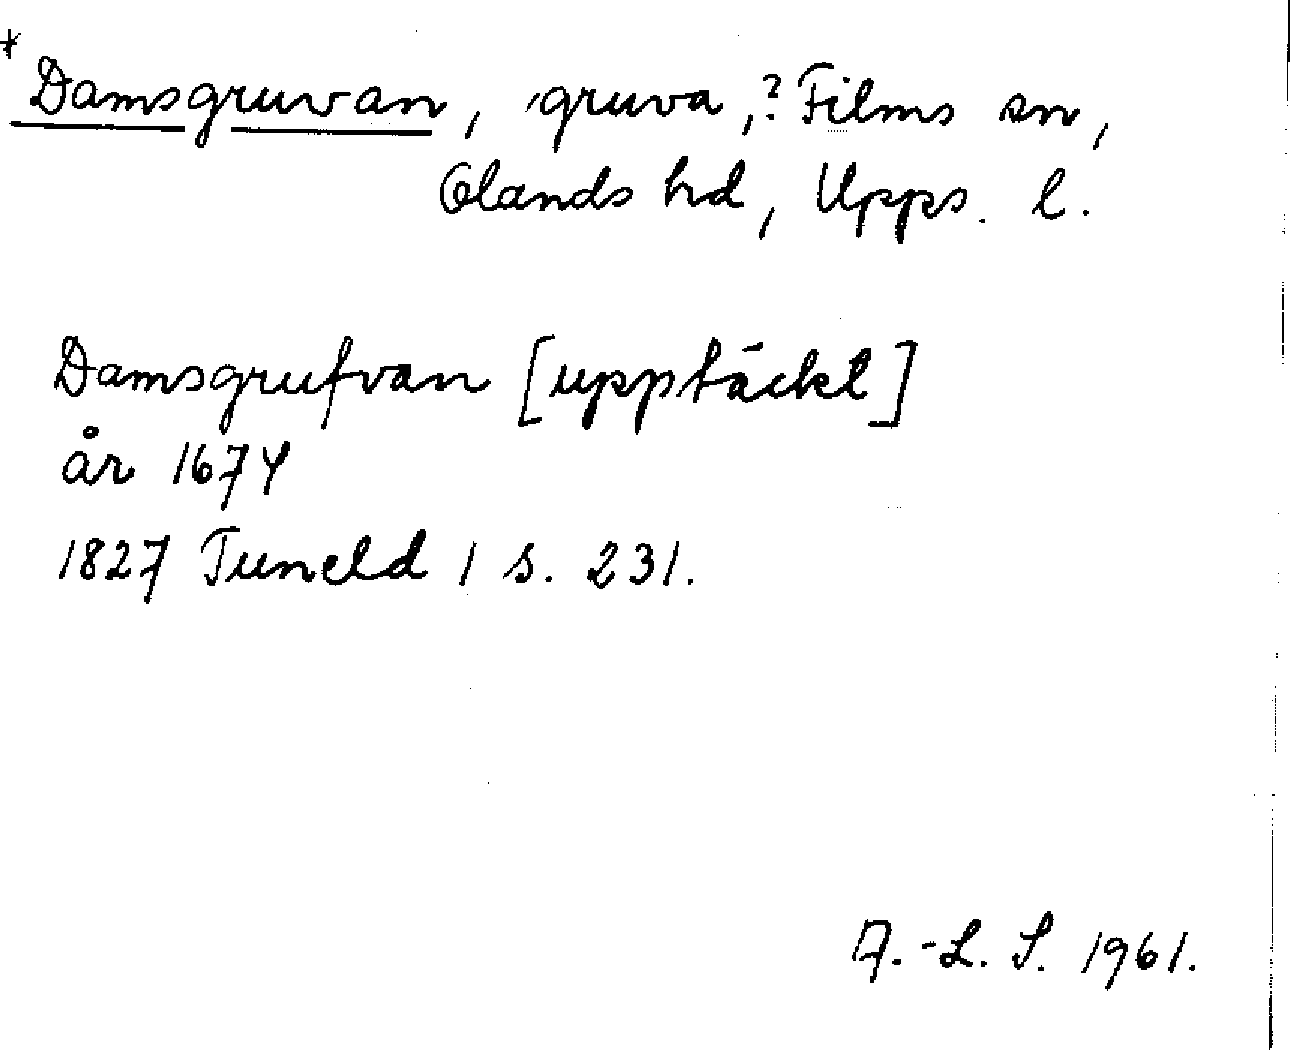 * Damsgruvan, gruva, ? Films sn,
Olands hd, Upps. l.
Damsgrufvan [upptäckt]
år 1674
1827 Tuneld 1 s. 231.
A.-L. S. 1961.